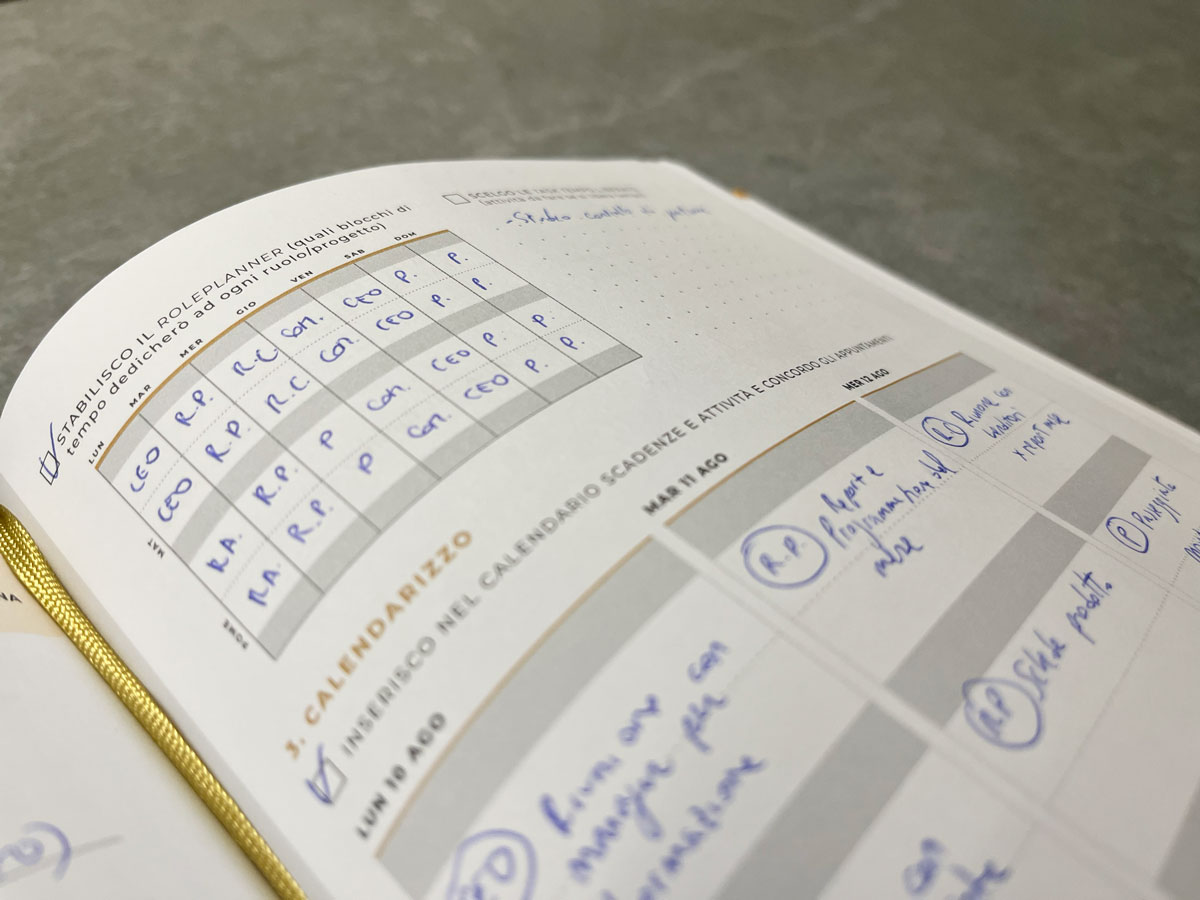 STABILISCO IL ROLEPLANNER (quali blocchi di
tempo dedicherò ad ogni ruolo/progetto)
LUN MAR MER GIO VEN SAB DOM
CEO R.P. R.C. Com. CEO P. P.
CEO R.P. R.C. Com. CEO P. P.
MAT
R.A. R.P. P Com. CEO P. P.
R.A. R.P. P Com. CEO P. P.
POME
SCELGO LE TASK TEMPO
3. CALENDARIZZO
INSERISCO NEL CALENDARIO SCADENZE E ATTIVITÀ E CONCORDO GLI APPUNTAMENTI
LUN 10 AGO
Riunione con
manager per
MAR 11 AGO
R.P. Report e
Programmazione del
mese
R.P. Schede prodotto
con
MER 12 AGO
Riunione con
venditori
x report
P
NA